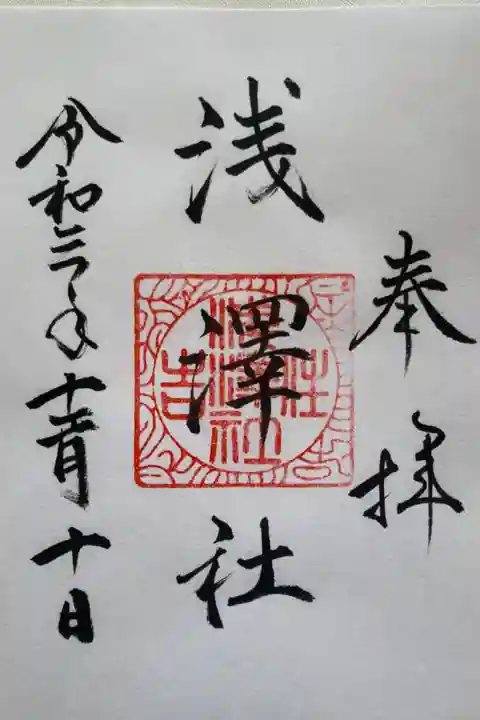 奉拝
浅澤社
住吉
浅澤社
令和三年十一月十日